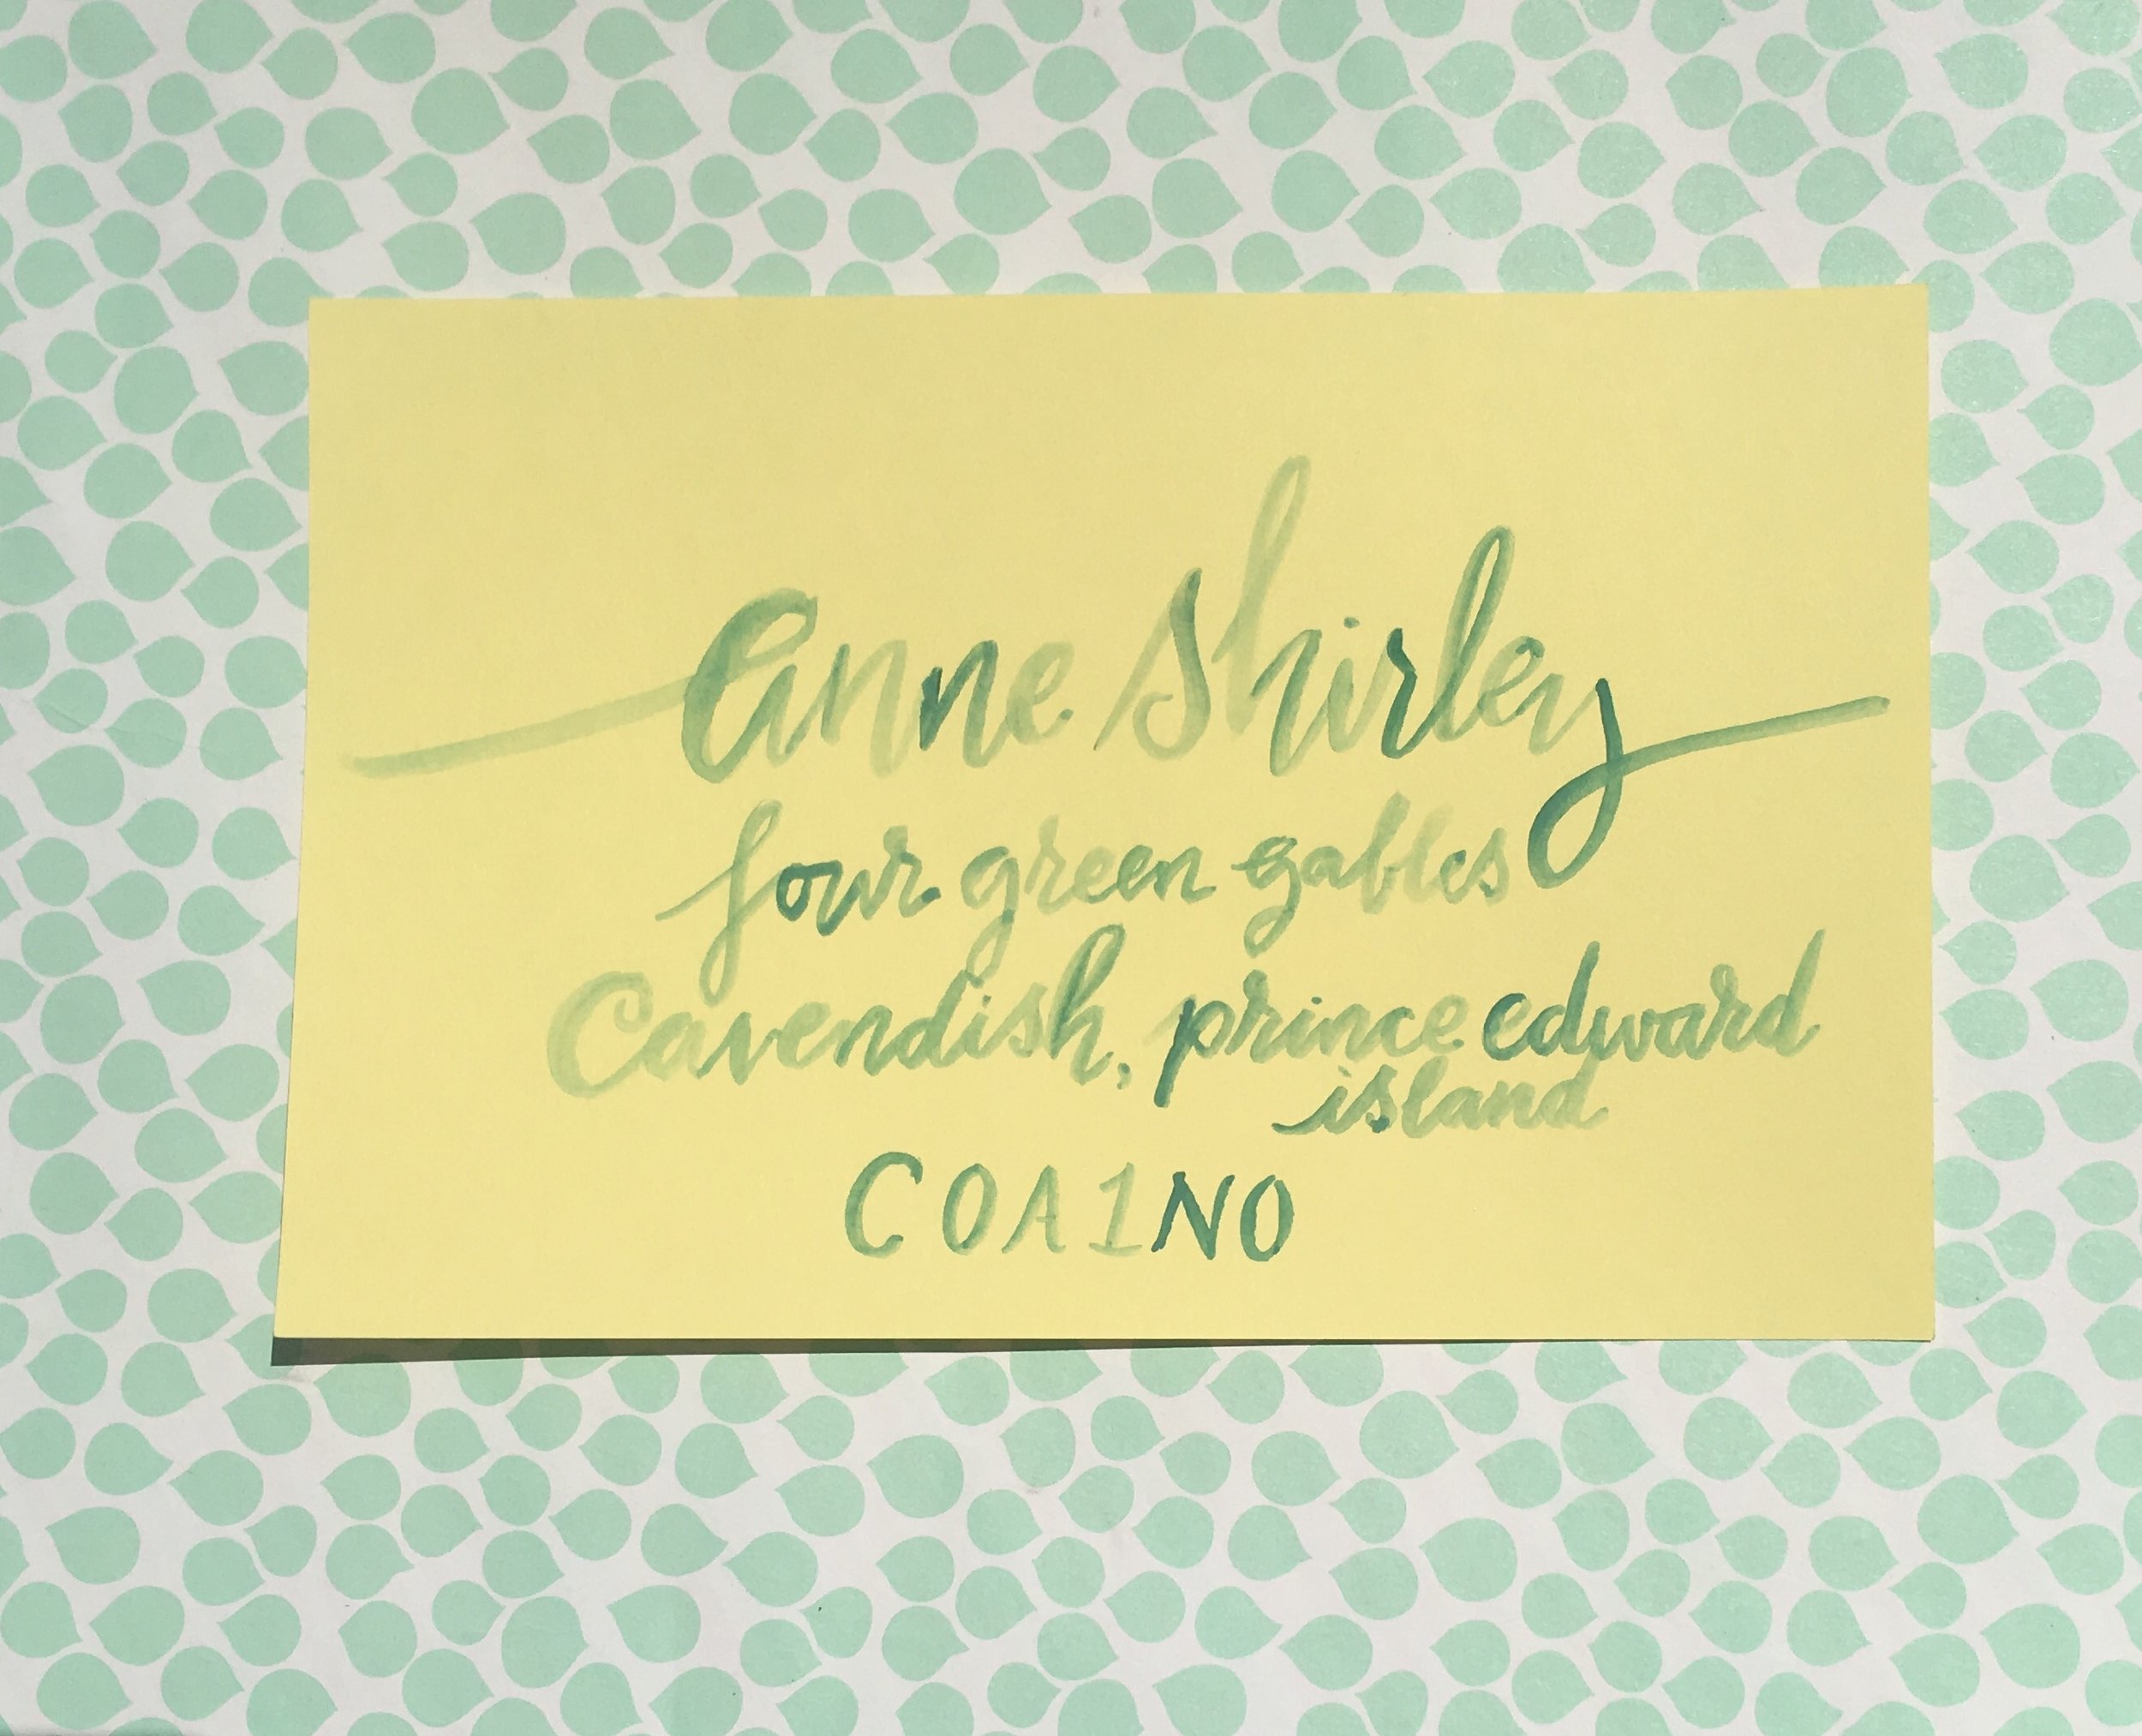 anne shirley
four green gables
Cavendish, prince edward
island
C0A1N0